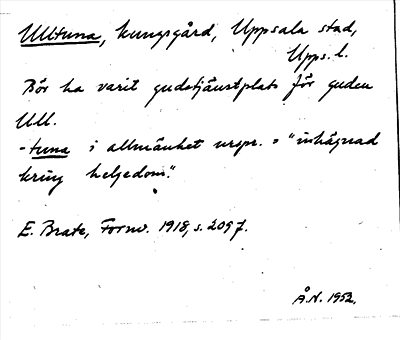 Ulltuna, kungsgård, Uppsala stad,
Upps. l.
Bör ha varit gudstjänstplats för guden
Ull.
-tuna i allmänhet urspr. = "inhägnad
kring helgedom".
E. Brate, Fornv. 1918, s. 209 f.
Å.N. 1952.